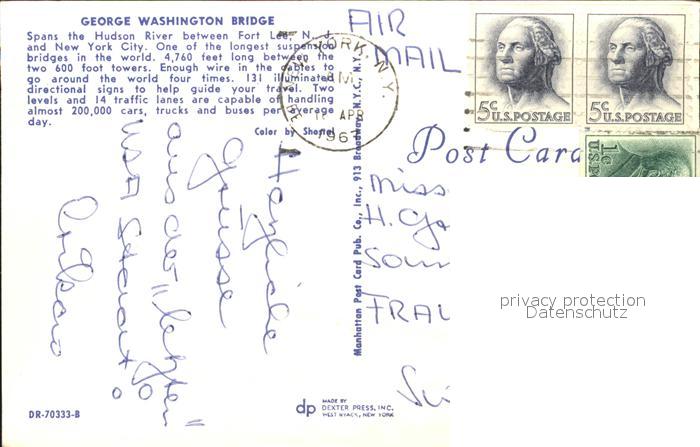 GEORGE WASHINGTON BRIDGE
Spans the Hudson River between Fort Lee, N. J.
and New York City. One of the longest suspension
bridges in the world. 4,760 feet long between the
two 600 foot towers. Enough wire in the cables to
go around the world four times. 131 illuminated
directional signs to help guide your travel. Two
levels and 14 traffic lanes are capable of handling
almost 200,000 cars, trucks and buses per average
day.
Color by Shostal
AIR
MAIL
YORK, N.Y.
APR
1967
5c
U.S. POSTAGE
5c
U.S. POSTAGE
1c
Post Card
Manhattan Post Card Pub. Co., Inc., 913 Broadway, N.Y.C., N.Y.
Herzliche
Grüsse
aus der
USA
Miss
H.
FRAU
privacy protection
Datenschutz
DR-70333-B
dp
MADE BY
DEXTER PRESS, INC.
WEST NYACK, NEW YORK